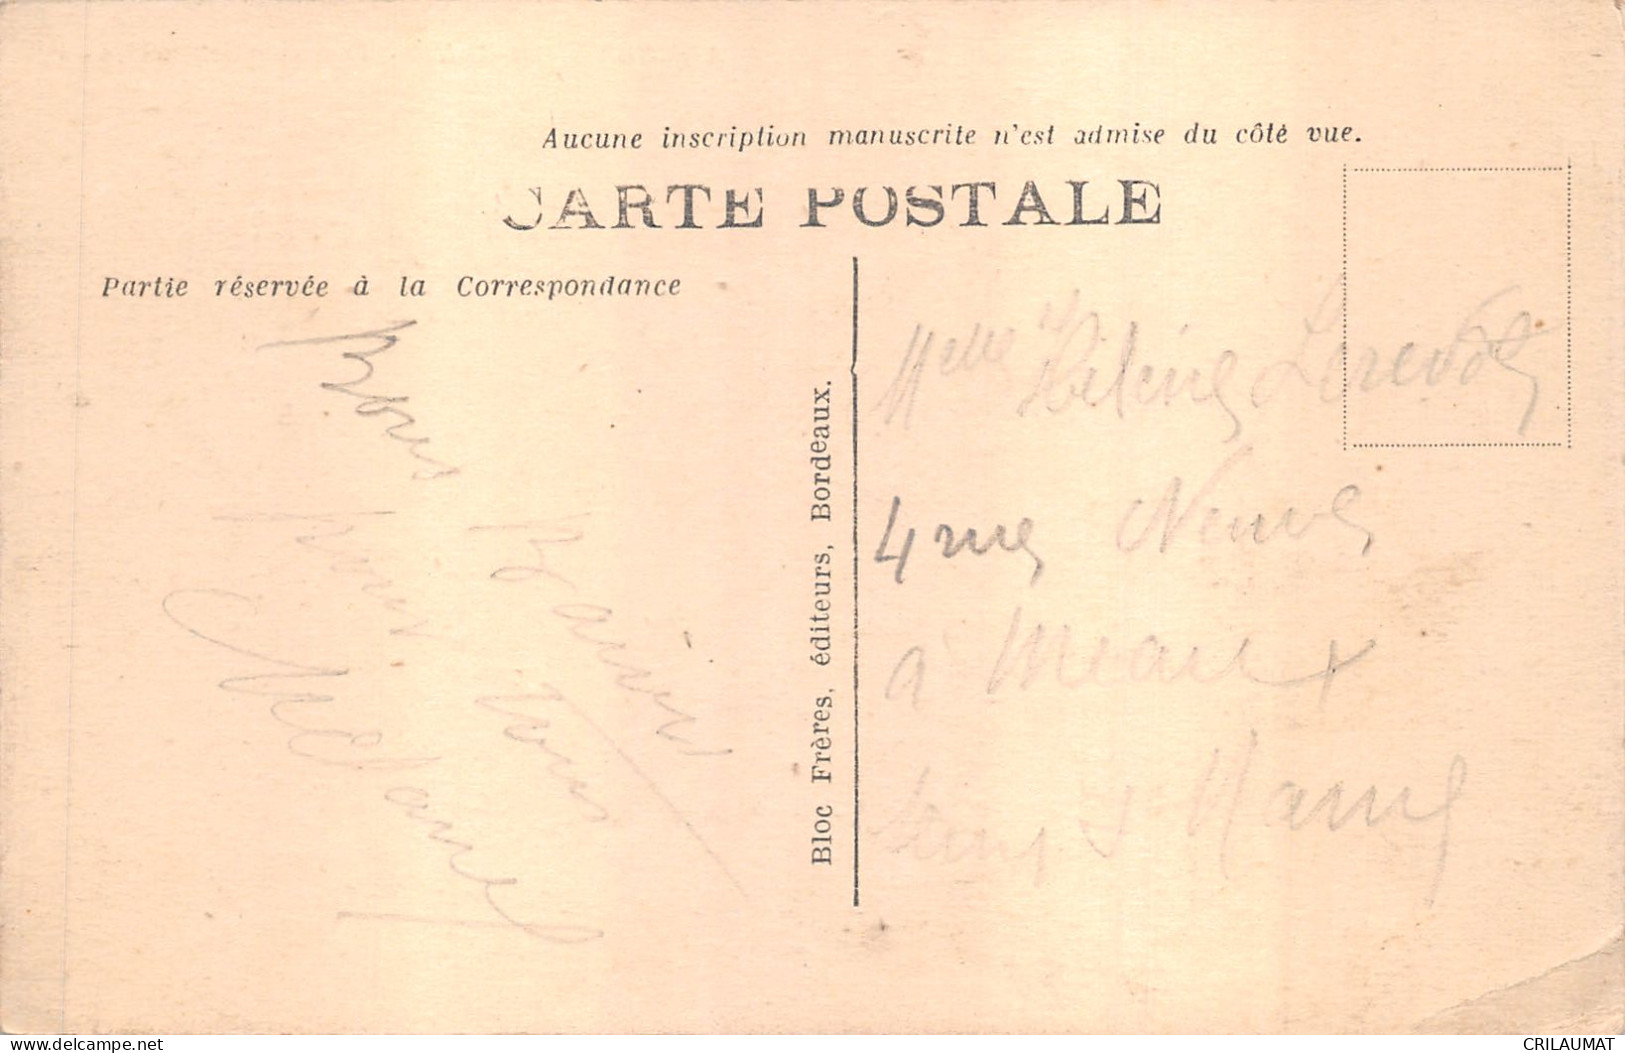 Aucune inscription manuscrite n'est admise du côté vue.
CARTE POSTALE
Partie réservée à la Correspondance
Bons Baisers
pour tous
Bloc Frères, éditeurs, Bordeaux.
Melle Hélène
4 rue Neuve
à Meaux
Seine & Marne
www.delcampe.net
CRILAUMAT